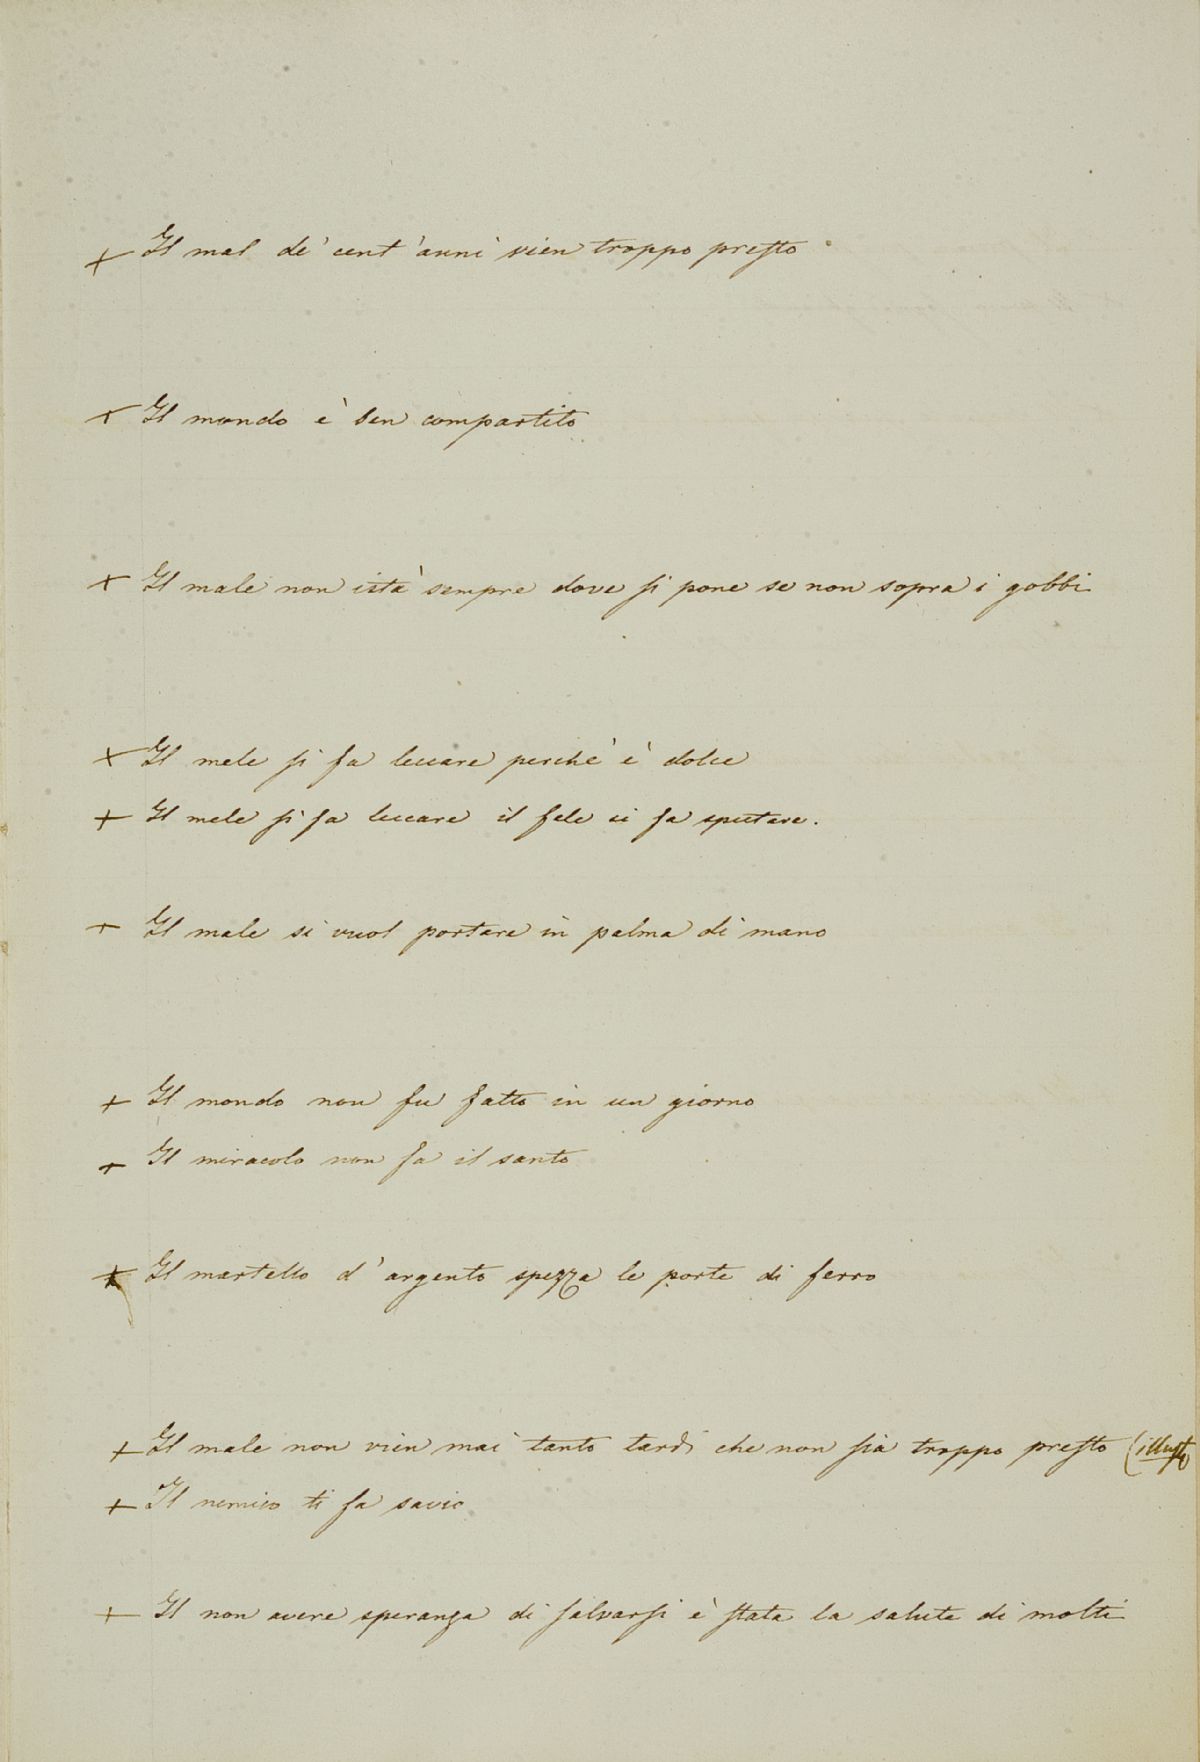 + Il mal de' cent'anni vien troppo presto
+ Il mondo è ben compartito
+ Il male non istà sempre dove si pone se non sopra i gobbi
+ Il mele si fa leccare perchè è dolce
+ Il mele si fa leccare il fele ci fa sputare.
+ Il male si vuol portare in palma di mano
+ Il mondo non fu fatto in un giorno
+ Il miracolo non fa il santo
+ Il martello d'argento spezza le porte di ferro
+ Il male non vien mai tanto tardi che non sia troppo presto (
+ Il nemico ti fa savio
+ Il non avere speranza di salvarsi è stata la salute di molti